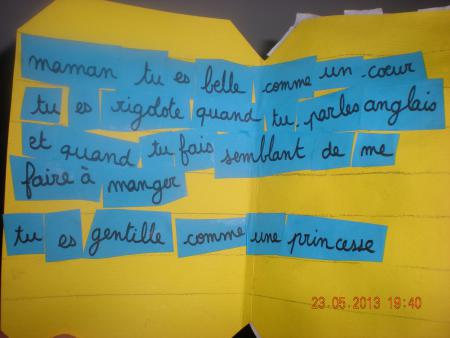 maman tu es belle comme un coeur
tu es rigolote quand tu parles anglais
et quand tu fais semblant de me
faire à manger
tu es gentille comme une princesse
23.05.2013 19:40